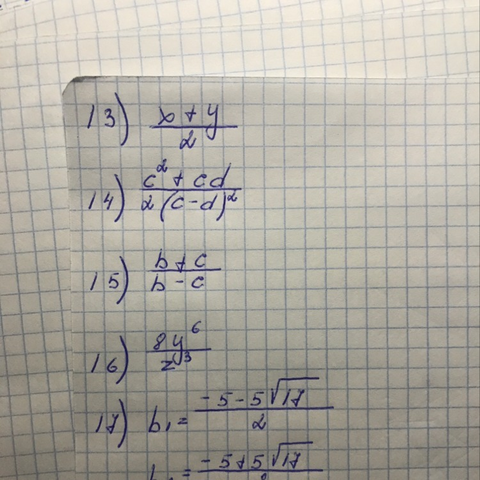 13) (x + y)/2
14) (c² + cd)/(2(c - d)²)
15) (b + c)/(b - c)
16) 8y⁶/z³
17) b₁ = (-5 - 5√17)/2
= (-5 + 5√17)/